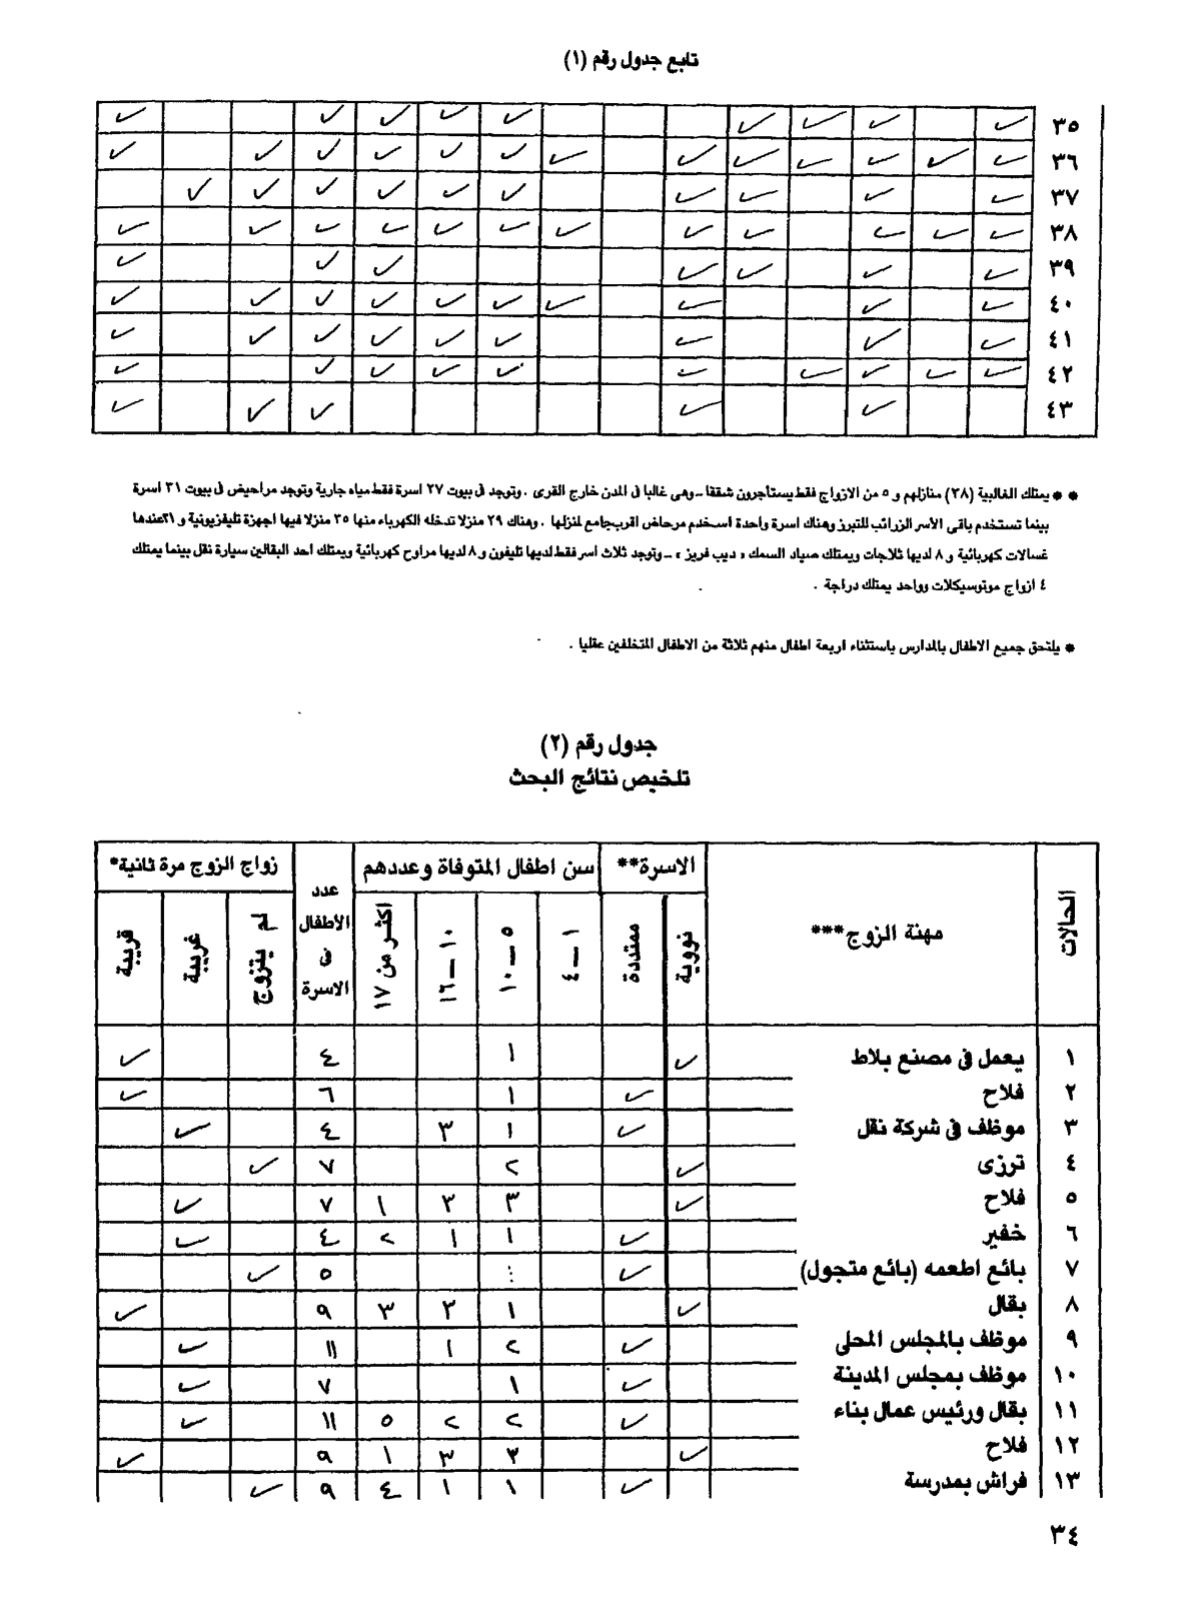 تابع جدول رقم (١)
٣٥ ✓ ✓ ✓ ✓ ✓ ✓ ✓ ✓ ✓
٣٦ ✓ ✓ ✓ ✓ ✓ ✓ ✓ ✓ ✓ ✓ ✓ ✓ ✓
٣٧ ✓ ✓ ✓ ✓ ✓ ✓ ✓ ✓ ✓ ✓
٣٨ ✓ ✓ ✓ ✓ ✓ ✓ ✓ ✓ ✓ ✓ ✓ ✓
٣٩ ✓ ✓ ✓ ✓ ✓ ✓ ✓
٤٠ ✓ ✓ ✓ ✓ ✓ ✓ ✓ ✓ ✓ ✓
٤١ ✓ ✓ ✓ ✓ ✓ ✓ ✓ ✓ ✓
٤٢ ✓ ✓ ✓ ✓ ✓ ✓ ✓ ✓ ✓ ✓
٤٣ ✓ ✓ ✓ ✓ ✓
* * يمتلك الغالبية (٣٨) منازلهم و ٥ من الازواج فقط يستأجرون شققا ــ وهى غالبا فى المدن خارج القرى . وتوجد فى بيوت ٢٧ اسرة فقط مياه جارية وتوجد مراحيض فى بيوت ٣١ اسرة
بينما تستخدم باقى الأسر الزرائب للتبرز وهناك اسرة واحدة اسـخدم مرحاض اقرب جامع لمنزلها . وهناك ٢٩ منزلا تدخله الكهرباء منها ٣٥ منزلا فيها اجهزة تليفزيونية و ٢١عندها
غسالات كهربائية و ٨ لديها ثلاجات ويمتلك صياد السمك « ديب فريز » ــ وتوجد ثلاث اسر فقط لديها تليفون و ٨ لديها مراوح كهربائية ويمتلك احد البقالين سيارة نقل بينما يمتلك
٤ ازواج موتوسيكلات وواحد يمتلك دراجة .
* يلتحق جميع الاطفال بالمدارس باستثناء اربعة اطفال منهم ثلاثة من الاطفال المتخلفين عقليا .
جدول رقم (٢)
تلخيص نتائج البحث
الحالات مهنة الزوج*** الاسرة** سن اطفال المتوفاة وعددهم عدد الأطفال فى الاسرة زواج الزوج مرة ثانية*
نووية ممتددة ١ ــ ٤ ٥ ــ ١٠ ١٠ ــ ١٦ اكثر من ١٧ لم يتزوج غريبة قريبة
١ يعمل فى مصنع بلاط ✓ ١ ٤ ✓
٢ فلاح ✓ ١ ٦ ✓
٣ موظف فى شركة نقل ✓ ١ ٣ ٤ ✓
٤ ترزى ✓ ٢ ٧ ✓
٥ فلاح ✓ ٣ ٣ ١ ٧ ✓
٦ خفير ✓ ١ ١ ٢ ٤ ✓
٧ بائع اطعمه (بائع متجول) ✓ ٥ ✓
٨ بقال ✓ ١ ٢ ٣ ٩ ✓
٩ موظف بالمجلس المحلى ✓ ٢ ١ ١١ ✓
١٠ موظف بمجلس المدينة ✓ ١ ٧ ✓
١١ بقال ورئيس عمال بناء ✓ ٢ ٢ ٥ ١١ ✓
١٢ فلاح ✓ ٣ ٣ ١ ٩ ✓
١٣ فراش بمدرسة ✓ ١ ١ ٤ ٩ ✓
٣٤